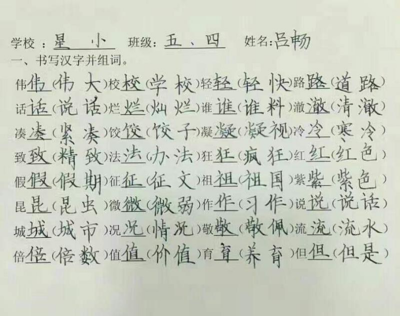 学校：星小 班级：五、四 姓名：吕畅
一、书写汉字并组词。
伟伟(伟大)校校(学校)轻轻(轻快)路路(道路)
话话(说话)烂烂(灿烂)谁谁(谁料)澈澈(清澈)
凑凑(紧凑)饺饺(饺子)凝凝(凝视)冷冷(寒冷)
致致(精致)法法(办法)狂狂(疯狂)红红(红色)
假假(假期)征征(征文)祖祖(祖国)紫紫(紫色)
昆昆(昆虫)微微(微弱)作作(习作)说说(说话)
城城(城市)况况(情况)敬敬(敬佩)流流(流水)
倍倍(倍数)值值(价值)育育(养育)但但(但是)